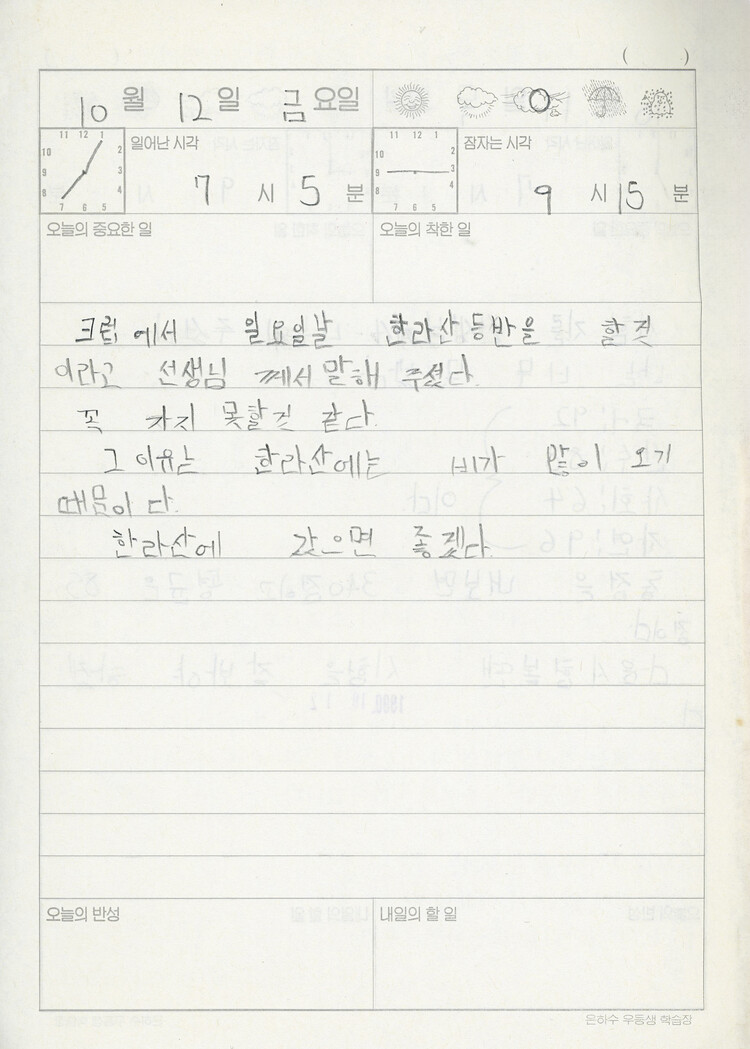 ( )
10 월 12 일 금 요일
11 12 1 2 3 4 5 6 7 8 9 10
일어난 시각
7 시 5 분
11 12 1 2 3 4 5 6 7 8 9 10
잠자는 시각
9 시 15 분
오늘의 중요한 일
오늘의 착한 일
크럽 에서 일요일날 한라산등반을 할것
이라고 선생님 께서 말해 주셨다.
꼭 가지 못할것 같다.
그 이유는 한라산에는 비가 많이 오기
때문이 다.
한라산에 갔으면 좋겠다.
오늘의 반성
내일의 할 일
은하수 우등생 학습장